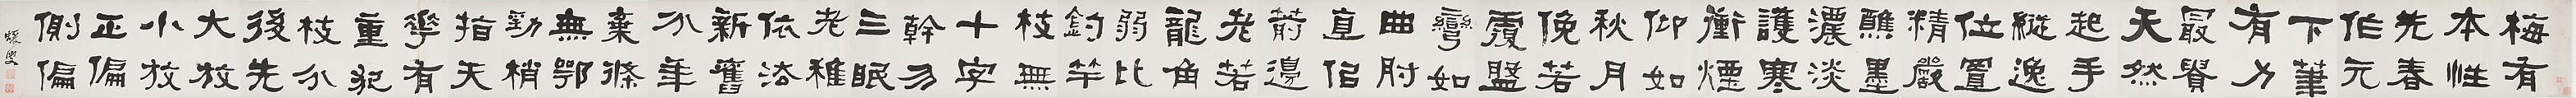 梅有
本性
先春
作元
下筆
有力
最貴
天然
起手
縱逸
位置
精嚴
醮墨
濃淡
護寒
衝煙
仰如
秋月
俛若
覆盤
彎如
曲肘
直佀
箭邊
老若
龍角
弱比
釣竿
枝無
十字
幹勿
三眠
老稚
依法
新舊
分年
棄條
無鄂
勁梢
指天
華有
重犯
枝分
後先
大放
小放
正偏
側偏
蝯叟